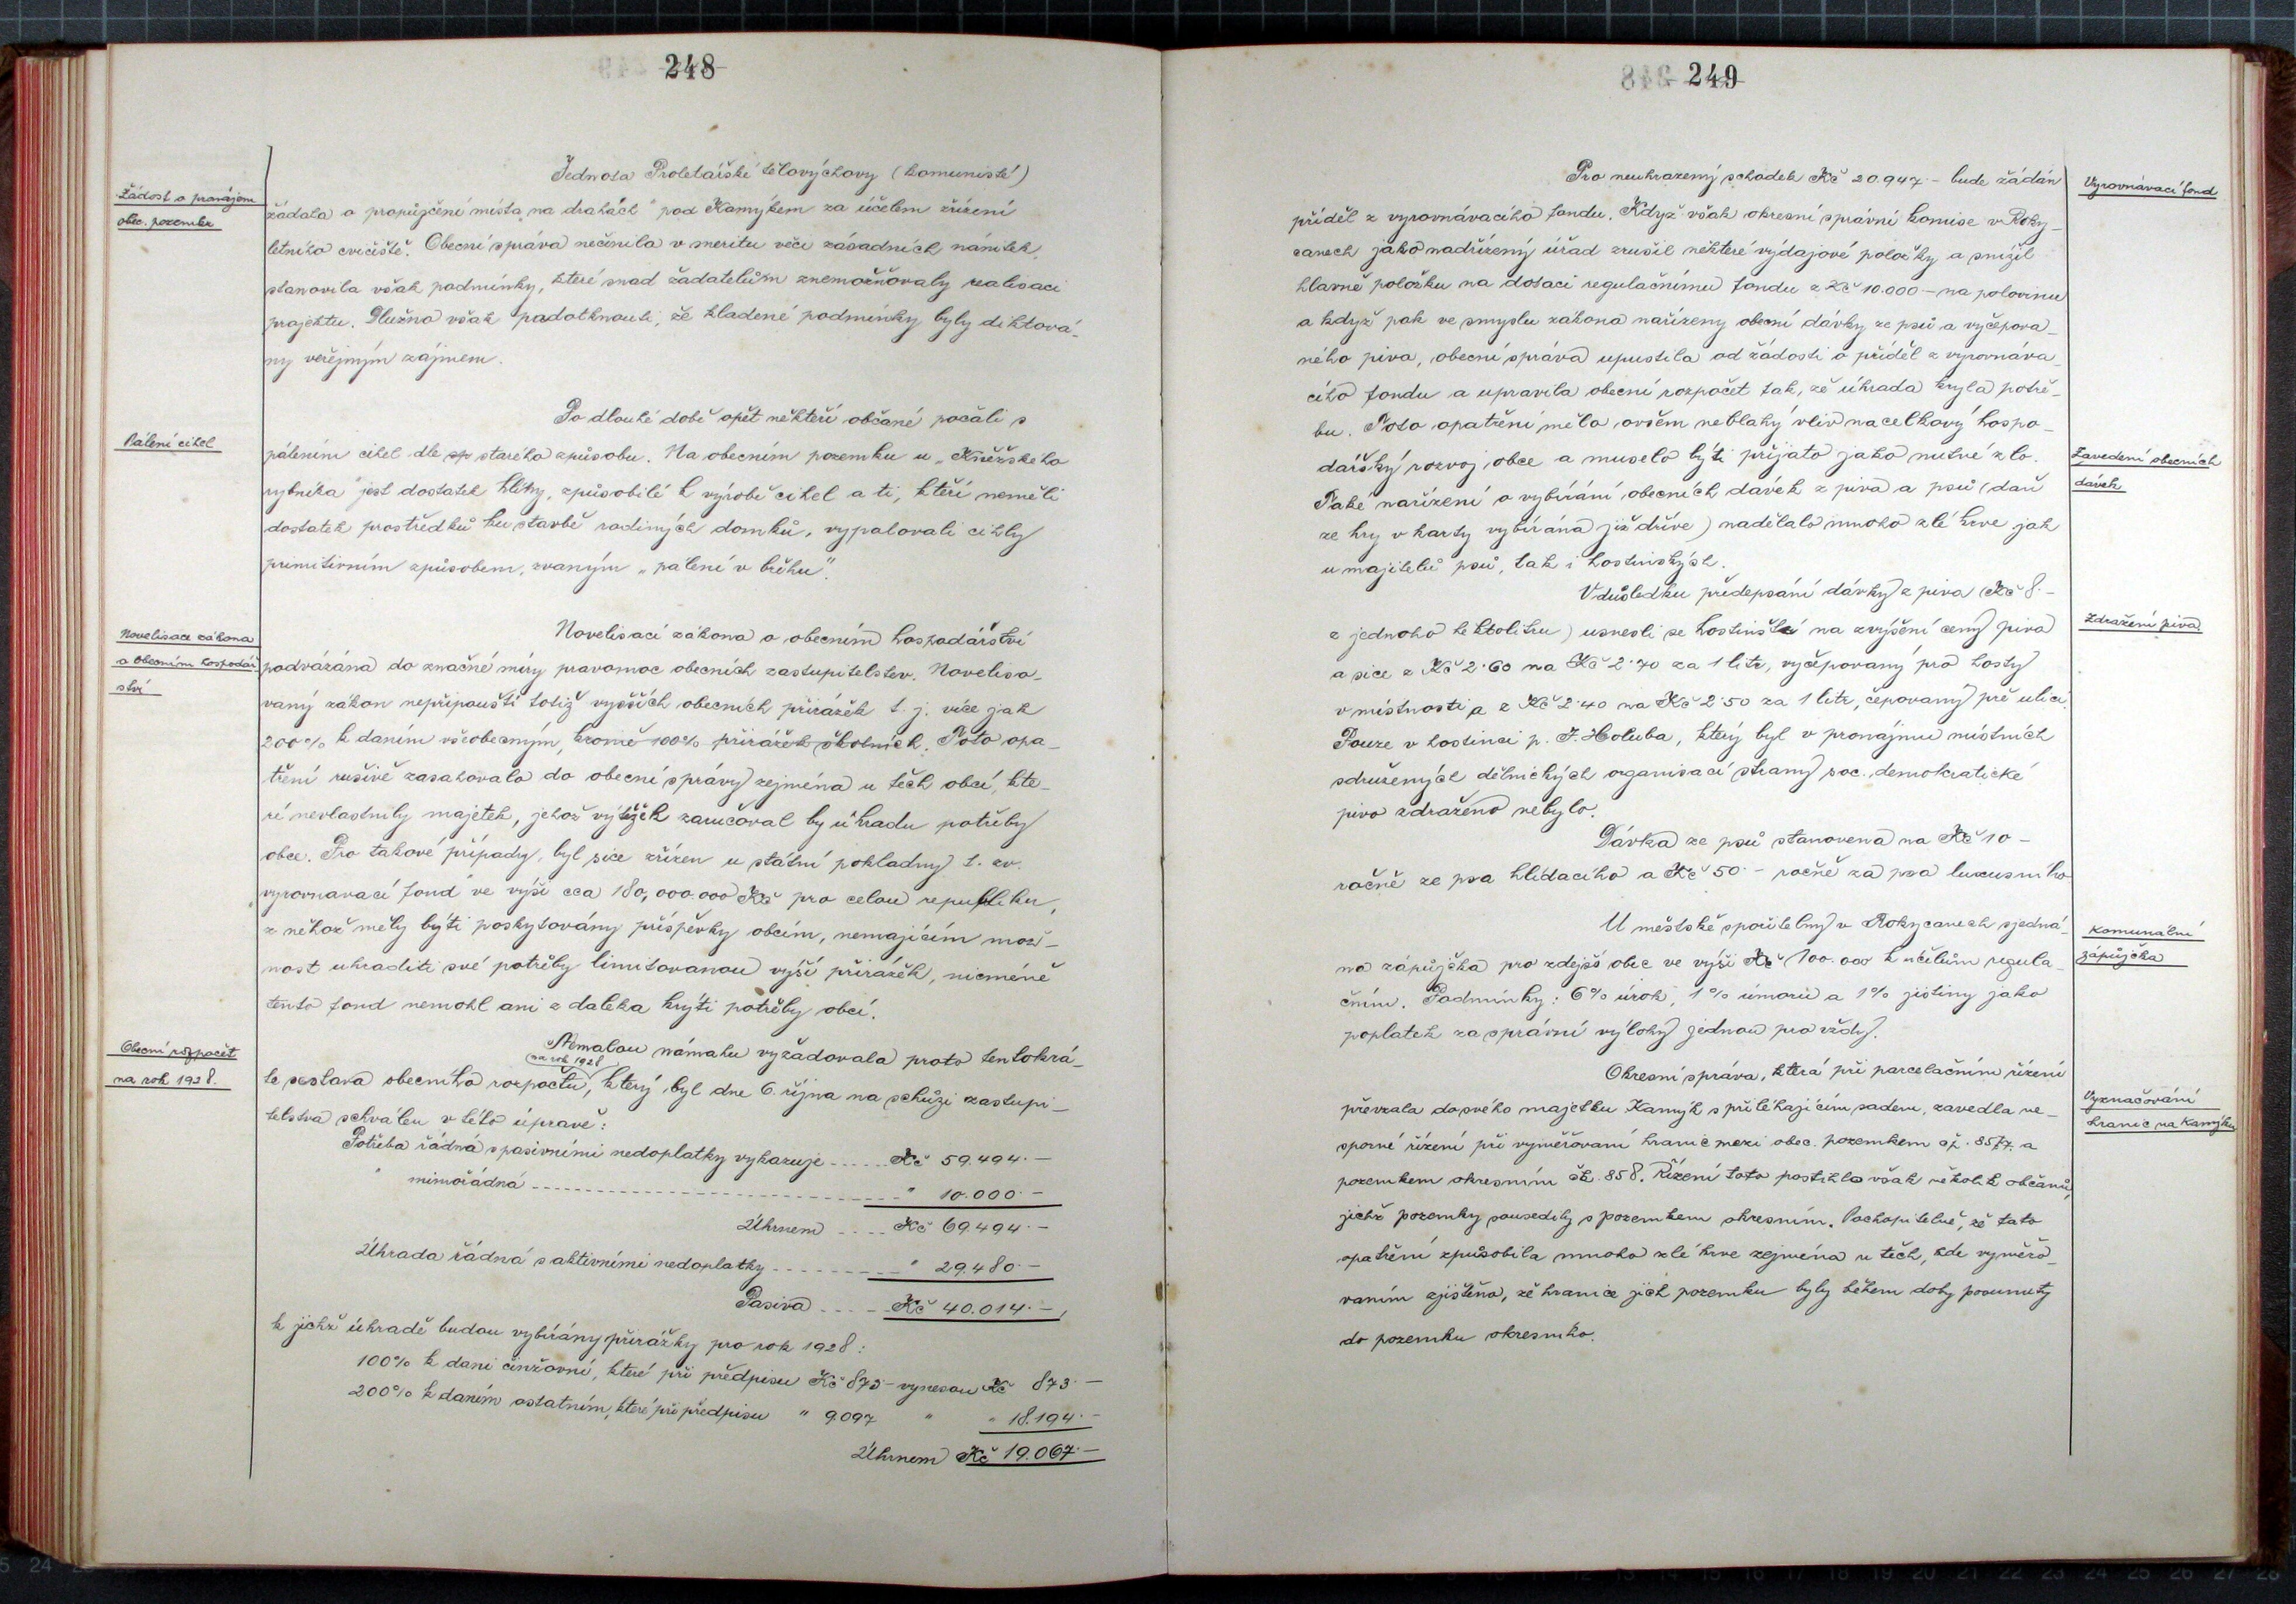 248
Žádost o pronájem
obec. pozemku
Jednota Proletářské tělovýchovy (komunisté)
žádala o propůjčení místa „na drahách" pod Kamýkem za účelem zřízení
letního cvičiště. Obecní správa nečinila v meritu věci zásadních námitek,
stanovila však podmínky, které snad žadatelům znemožňovaly realisaci
projektu. Dlužno však podotknouti, že kladené podmínky byly diktová-
ny veřejným zájmem.
Pálení cihel
Po dlouhé době opět někteří občané počali s
pálením cihel dle sp starého způsobu. Na obecním pozemku u „Kněžského
rybníka" jest dostatek hlíny, způsobilé k výrobě cihel a ti, kteří neměli
dostatek prostředků ku stavbě rodinných domků, vypalovali cihly
primitivním způsobem, zvaným „pálení v břehu".
Novelisace zákona
o obecním hospodář-
ství
Novelisací zákona o obecním hospodářství
podvázána do značné míry pravomoc obecních zastupitelstev. Noveliso-
vaný zákon nepřipouští totiž vyšších obecních přirážek t. j. více jak
200% k daním všeobecným, kromě 100% přirážek školních. Toto opa-
tření rušivě zasahovalo do obecní správy zejména u těch obcí, kte-
ré nevlastnily majetek, jehož výtěžek zaručoval by úhradu potřeby
obce. Pro takové případy, byl sice zřízen u státní pokladny t. zv.
vyrovnavací fond ve výši cca 180,000.000 Kč pro celou republiku,
z něhož měly býti poskytovány příspěvky obcím, nemajícím mož-
nost uhraditi své potřeby limitovanou výší přirážek, nicméně
tento fond nemohl ani z daleka krýti potřeby obcí.
Obecní rozpočet
na rok 1928.
Nemalou námahu vyžadovala proto tentokrá-
na rok 1928
te sestava obecního rozpočtu, který byl dne 6. října na schůzi zastupi-
telstva schválen v této úpravě:
Potřeba řádná s pasivními nedoplatky vykazuje ...... Kč 59.494.-
" mimořádná ...... " 10.000.-
Úhrnem .... Kč 69.494.-
Úhrada řádná s aktivními nedoplatky ...... " 29.480.-
Pasiva ..... Kč 40.014.-,
k jichž úhradě budou vybírány přirážky pro rok 1928:
100% k dani činžovní, které při předpisu Kč 873.- vynesou Kč 873.-
200% k daním ostatním, které při předpisu " 9.097 " " 18.194.-
Úhrnem Kč 19.067.-
249
Vyrovnávací fond
Pro neuhrazený schodek Kč 20.947.- bude žádán
příděl z vyrovnávacího fondu. Když však okresní správní komise v Roky-
canech jako nadřízený úřad zrušil některé výdajové položky a snížil
hlavně položku na dotaci regulačnímu fondu z Kč 10.000.- na polovinu
a když pak ve smyslu zákona nařízeny obecní dávky ze psů a vyčepova-
ného piva, obecní správa upustila od žádosti o příděl z vyrovnáva-
cího fondu a upravila obecní rozpočet tak, že úhrada kryla potře-
bu. Toto opatření mělo ovšem neblahý vliv na celkový hospo-
dářský rozvoj obce a muselo býti přijato jako nutné zlo.
Zavedení obecních
dávek
Také nařízení o vybírání obecních dávek z piva a psů (daň
ze hry v karty vybírána již dříve) nadělalo mnoho zlé krve jak
u majitelů psů, tak i hostinských.
Zdražení piva
V důsledku předepsání dávky z piva (Kč 8.-
z jednoho hektolitru) usnesli se hostinští na zvýšení ceny piva
a sice z Kč 2·60 na Kč 2·70 za 1 litr, vyčepovaný pro hosty
v místnosti a z Kč 2·40 na Kč 2·50 za 1 litr, čepovaný přes ulici.
Pouze v hostinci p. J. Holuba, který byl v pronájmu místních
sdružených dělnických organisací strany soc. demokratické
pivo zdraženo nebylo.
Dávka ze psů stanovena na Kč 10.-
ročně ze psa hlídacího a Kč 50.- ročně za psa luxusního
Komunální
zápůjčka
U městské spořitelny v Rokycanech sjedná-
na zápůjčka pro zdejší obec ve výši Kč 100.000 k účelům regula-
čním. Podmínky: 6% úrok, 1% úmoru a 1% jistiny jako
poplatek za správní výlohy jednou pro vždy.
Vyznačování
hranic na Kamýku
Okresní správa, která při parcelačním řízení
převzala do svého majetku Kamýk s přiléhajícím sadem, zavedla ne-
sporné řízení při vyměřovaní hranic mezi obec. pozemkem čp. 857/7. a
pozemkem okresním čk. 858. Řízení toto postihlo však několik občanů,
jichž pozemky sousedily s pozemkem okresním. Pochopitelně, že toto
opatření způsobila mnoho zlé krve zejména u těch, kde vyměřo-
vaním zjištěno, že hranice jich pozemku byly během doby posunuty
do pozemku okresního.